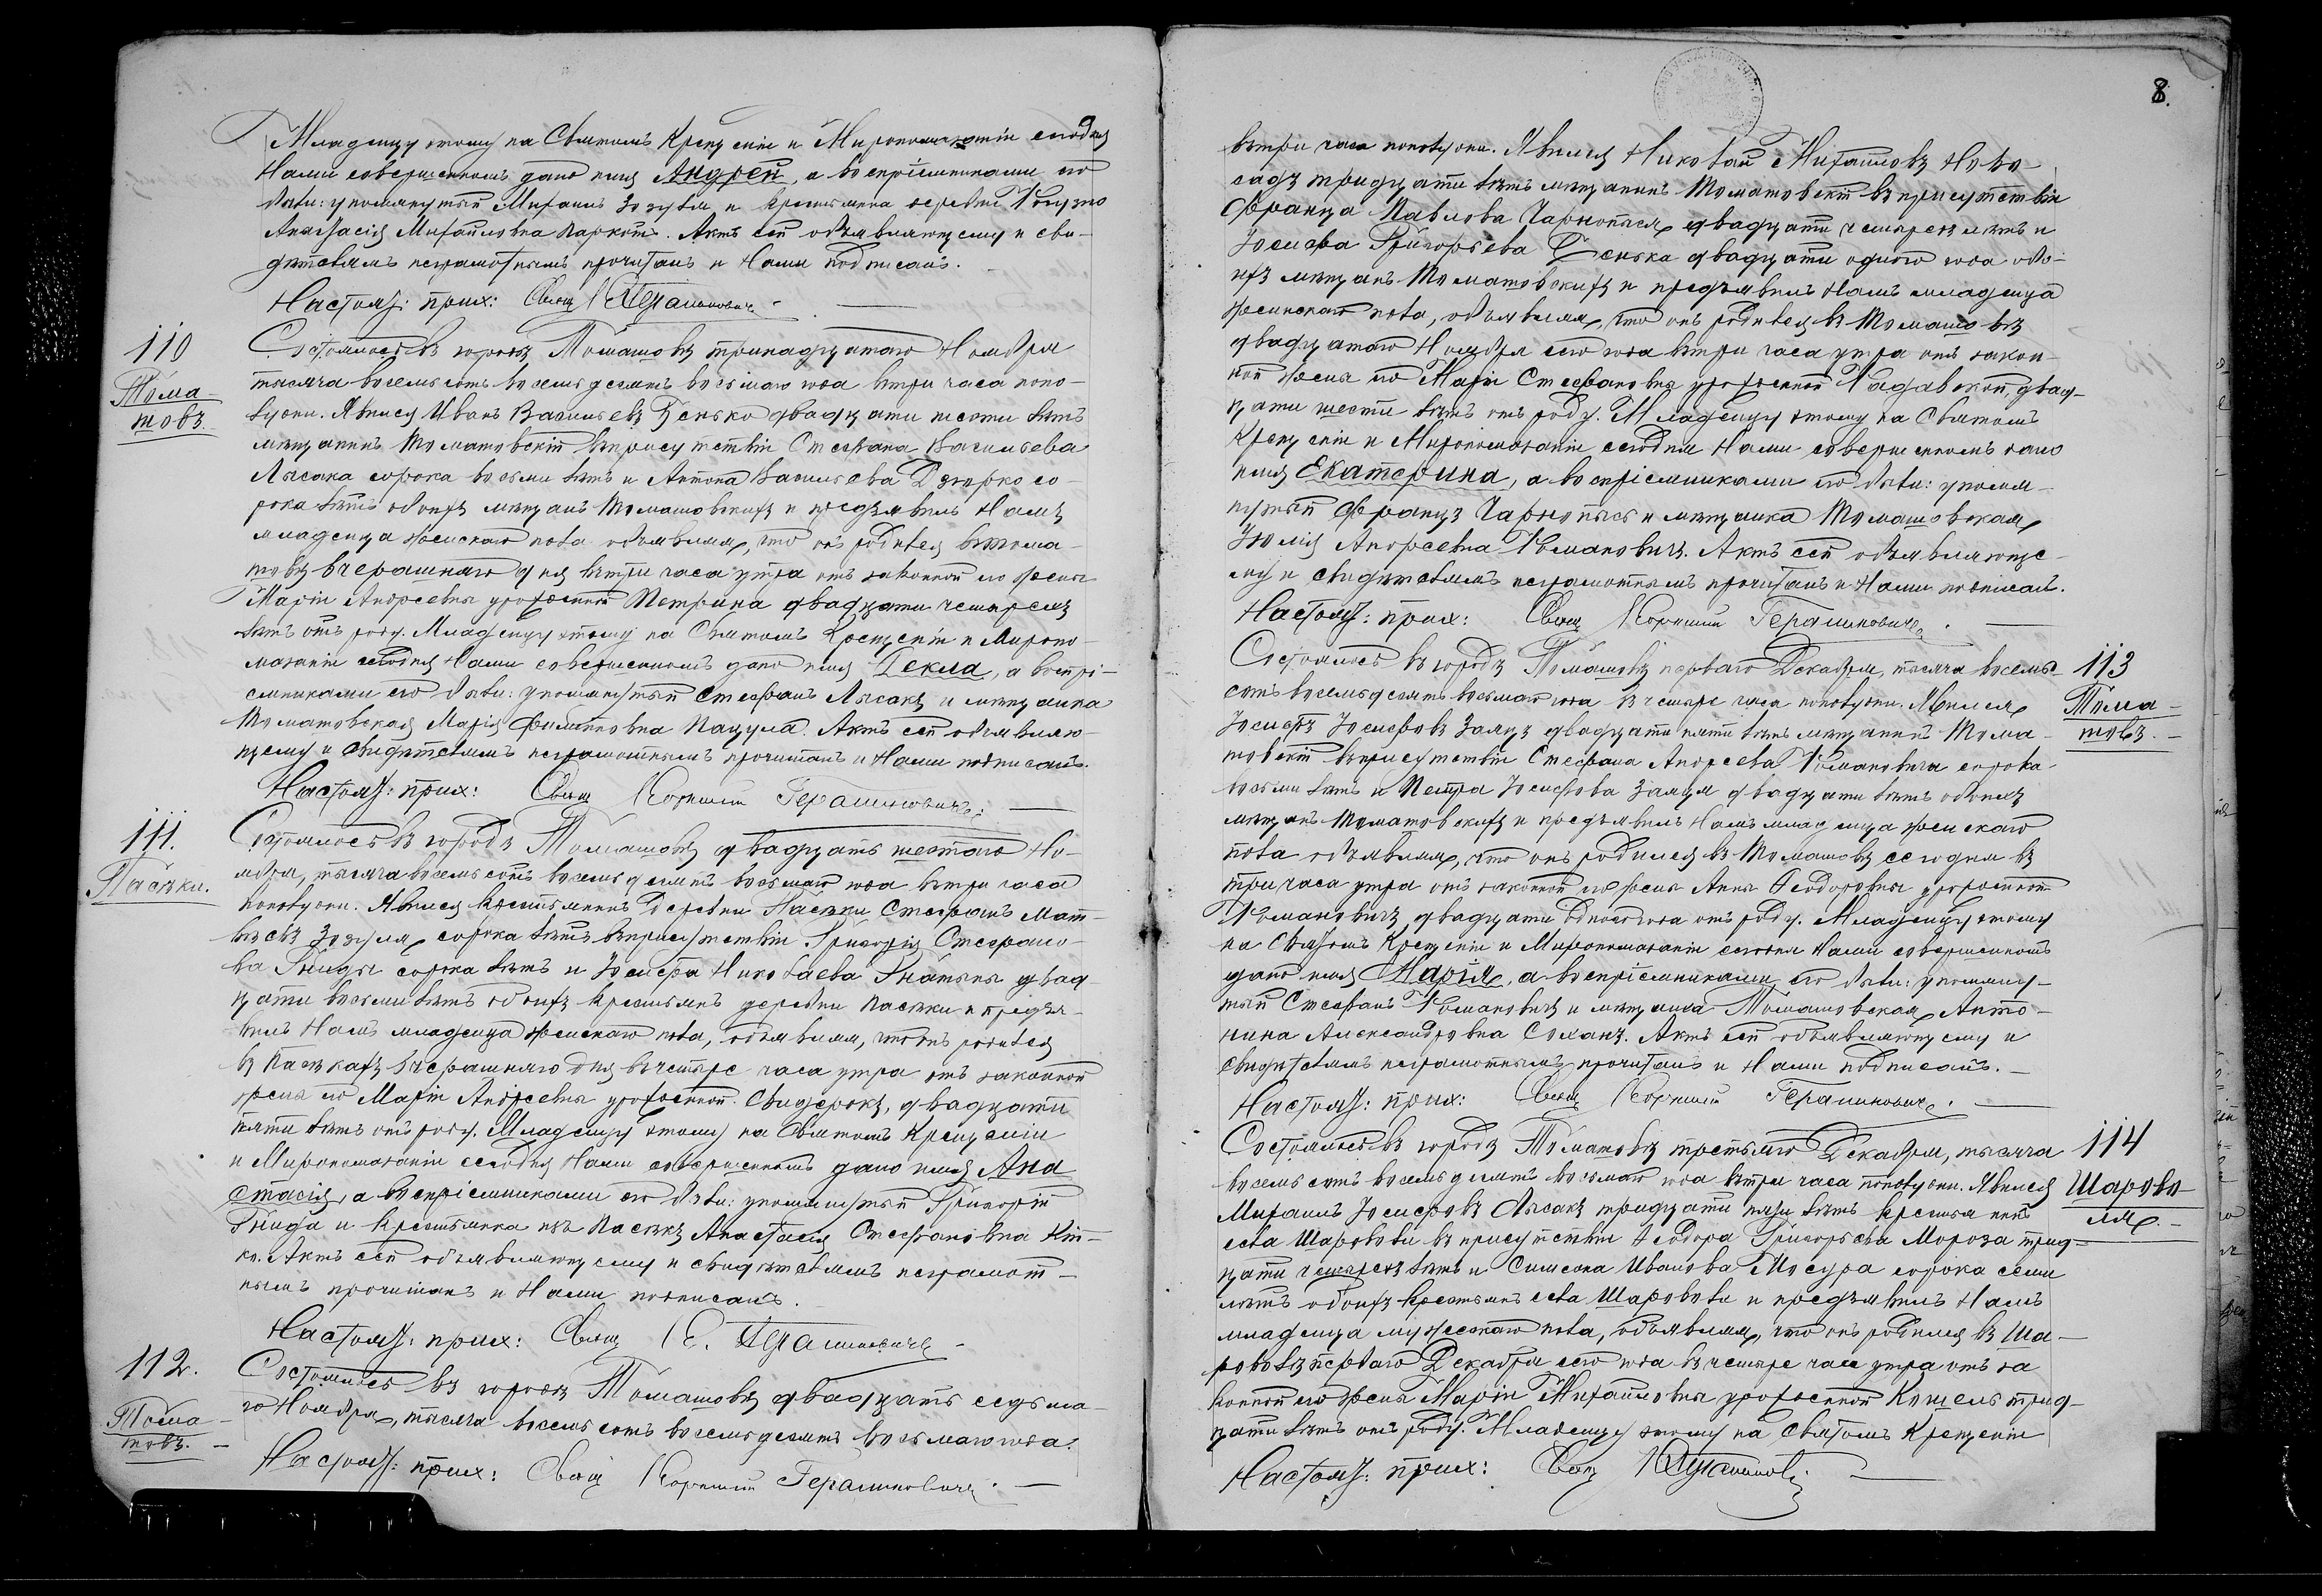 Младенцу этому на Святомъ Крещеніи и Миропомазаніи сегодня
Нами совершенномъ дано имя Андрей, а воспріемниками его
были: упомянутый Михаилъ Зозуля и крестьянка деревни
Анастасія Михайловна Паркотъ. Актъ сей объявляющему и сви-
дѣтелямъ неграмотнымъ прочитанъ и Нами подписанъ.
Настоят: прих: Свящ К Герашиновичъ
110
Тома
шовъ
Состоялось въ городѣ Томашовѣ тринадцатаго Ноября
тысяча восемьсотъ восемьдесятъ восьмаго года въ три часа попо-
лудни. Явился Иванъ Васильевъ Сенько двадцати шести лѣтъ
мѣщанинъ Томашовскій въ присутствіи Стефана Васильева
Лысака сорока восьми лѣтъ и Антона Васильева Дзюрко со-
рока лѣтъ обоихъ мѣщанъ Томашовскихъ и предъявилъ Намъ
младенца женскаго пола объявляя, что онъ родился въ Тома-
шовѣ вчерашняго дня въ три часа утра отъ законной его жены
Маріи Андреевны урожденной Петрина двадцати четырехъ
лѣтъ отъ роду. Младенцу этому на Святомъ Крещеніи и Миропо-
мазаніи сегодня Нами совершенномъ дано имя Текла, а воспрі-
емниками его были: упомянутый Стефанъ Лысакъ и мѣщанка
Томашовская Марія Филиповна Пацула. Актъ сей объявляю-
щему и свидѣтелямъ неграмотнымъ прочитанъ и Нами подписанъ.
Настоят: прих: Свящ Корнилій Герашиновичъ
111.
Пасѣки.
Состоялось въ городѣ Томашовѣ двадцать шестого Но-
ября, тысяча восемьсотъ восемьдесятъ восьмаго года въ три часа
пополудни. Явился крестьянинъ деревни Пасѣки Стефанъ Мат-
вѣевъ Зозуля, сорока лѣтъ въ присутствіи Григорія Стефано-
ва Гниды сорока лѣтъ и Іосифа Николаева Гнатыны двад-
цати восьми лѣтъ обоихъ крестьянъ деревни Пасѣки и предъя-
вилъ Намъ младенца женскаго пола, объявляя, что онъ родился
въ Пасѣкахъ вчерашняго дня въ четыре часа утра отъ законной
жены его Маріи Андреевны урожденной Свидерокъ, двадцати
пяти лѣтъ отъ роду. Младенцу этому на Святомъ Крещеніи
и Миропомазаніи сегодня Нами совершенномъ дано имя Ана
стасія, а воспріемниками его были: упомянутый Григорій
Гнида и крестьянка изъ Пасѣкъ Анастасія Стефановна Кій-
ко. Актъ сей объявляющему и свидѣтелямъ неграмот-
нымъ прочитанъ и Нами подписанъ.
Настоят: прих: Свящ К. Герашиновичъ
112.
Тома-
шовъ.
Состоялось въ городѣ Томашовѣ двадцать седьма-
го Ноября, тысяча восемьсотъ восемьдесятъ восьмаго года.
Настоят: прих: Свящ Корнилій Герашиновичъ
8.
въ три часа пополудни. Явился Николай Михайловъ Ново-
садъ тридцати лѣтъ мѣщанинъ Томашовскій въ присутствіи
Франца Павлова Чарнопыся двадцати четырехъ лѣтъ и
Іосифа Григорьева Сенька двадцати одного года обо-
ихъ мѣщанъ Томашовскихъ и предъявилъ Намъ младенца
женскаго пола, объявляя, что онъ родился въ Томашовѣ
двадцатаго Ноября сего года въ три часа утра отъ закон-
ной жены его Маріи Стефановны урожденной Садавской, двад-
цати шести лѣтъ отъ роду. Младенцу этому на Святомъ
Крещеніи и Миропомазаніи сегодня Нами совершенномъ дано
имя Екатерина, а воспріемниками его были: упомя-
нутый Францъ Чарнопысь и мѣщанка Томашовская
Юлія Андреевна Романовичъ. Актъ сей объявляюще-
му и свидѣтелямъ неграмотнымъ прочитанъ и Нами подписанъ.
Настоят: прих: Свящ Корнилій Герашиновичъ.
113
Тома-
шовъ.
Состоялось въ городѣ Томашовѣ перваго Декабря, тысяча восемь-
сотъ восемьдесятъ восьмаго года въ четыре часа пополудни. Явился
Іосифъ Іосифовъ Заяцъ двадцати пяти лѣтъ мѣщанинъ Тома-
шовскій въ присутствіи Стефана Андреева Романовича сорока
восьми лѣтъ и Петра Іосифова Заяца двадцати лѣтъ обоихъ
мѣщанъ Томашовскихъ и предъявилъ Намъ младенца женскаго
пола объявляя, что онъ родился въ Томашовѣ сегодня въ
три часа утра отъ законной его жены Анны Ѳеодоровны урожденной
Романовичъ, двадцати одного года отъ роду. Младенцу этому
на Святомъ Крещеніи и Миропомазаніи сегодня Нами совершенномъ
дано имя Марія, а воспріемниками его были: упомяну-
тый Стефанъ Романовичъ и мѣщанка Томашовская Анто-
нина Александровна Соханъ. Актъ сей объявляющему и
свидѣтелямъ неграмотнымъ прочитанъ и Нами подписанъ.
Настоят: прих: Свящ Корнилій Герашиновичъ.
114
Шарово-
ля.
Состоялось въ городѣ Томашовѣ третьяго Декабря, тысяча
восемьсотъ восемьдесятъ восьмаго года въ три часа пополудни. Явился
Михаилъ Іосифовъ Лысакъ тридцати пяти лѣтъ крестьянинъ
села Шароволи въ присутствіи Ѳеодора Григорьева Мороза трид-
цати четырехъ лѣтъ и Симеона Иванова Мосура сорока семи
лѣтъ обоихъ крестьянъ села Шароволи и предъявилъ Намъ
младенца мужескаго пола, объявляя, что онъ родился въ Ша-
роволѣ перваго Декабря сего года въ четыре часа утра отъ за
конной его жены Маріи Михайловны урожденной Кошель трид-
цати лѣтъ отъ роду. Младенцу этому на Святомъ Крещеніи
Настоят: прих: Свящ К Герашинов